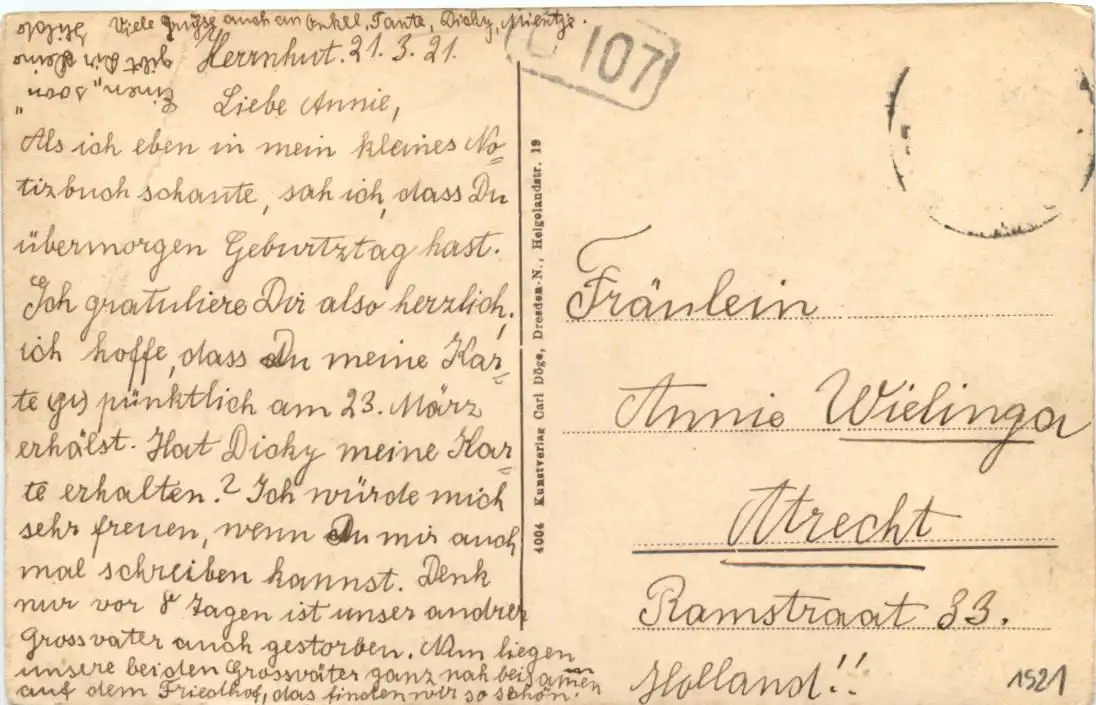 Viele Grüsse auch an Onkel, Tante, Dicky, Mientje.
Herrnhut. 21. 3. 21.
Liebe Annie,
Als ich eben in mein kleines No-
tizbuch schaute, sah ich, dass Du
übermorgen Geburtztag hast.
Ich gratuliere Dir also herzlich,
ich hoffe, dass Du meine Kar-
te pünktlich am 23. März
erhälst. Hat Dicky meine Kar-
te erhalten? Ich würde mich
sehr freuen, wenn Du mir auch
mal schreiben kannst. Denk
nur vor 8 Tagen ist unser andrer
Grossvater auch gestorben. Nun liegen
unsere beiden Grossväter ganz nah beisamen
auf dem Friedhof, das finden wir so schön!
Einen "Soen"
gibt Dir Deine
L 107
4004 Kunstverlag Carl Döge, Dresden-N., Helgolandstr. 19
Fräulein
Annie Wielinga
Utrecht
Ramstraat 33.
Holland!!
1921